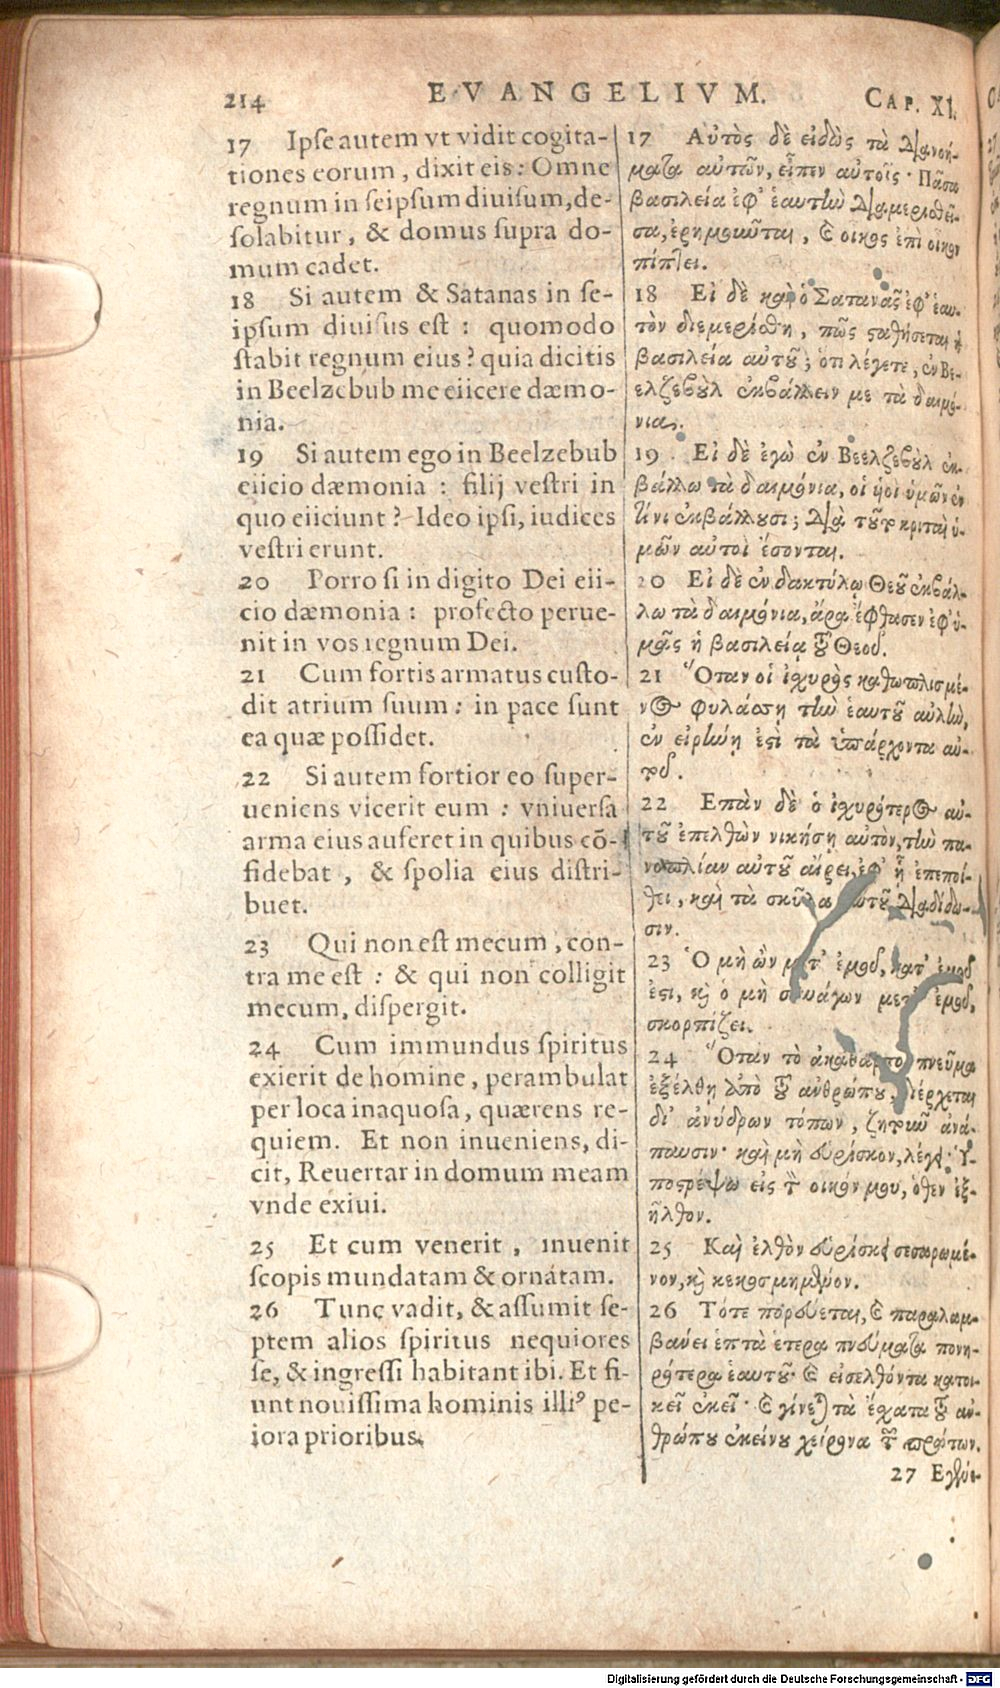 214 EVANGELIVM. CAP. XI.
17 Ipse autem vt vidit cogita-
tiones eorum, dixit eis: Omne
regnum in seipsum diuisum, de-
solabitur, & domus supra do-
mum cadet.
18 Si autem & Satanas in se-
ipsum diuisus est: quomodo
stabit regnum eius? quia dicitis
in Beelzebub me eiicere dæmo-
nia.
19 Si autem ego in Beelzebub
eiicio dæmonia: filij vestri in
quo eiiciunt? Ideo ipsi, iudices
vestri erunt.
20 Porro si in digito Dei eii-
cio dæmonia: profecto perue-
nit in vos regnum Dei.
21 Cum fortis armatus custo-
dit atrium suum: in pace sunt
ea quæ possidet.
22 Si autem fortior eo super-
ueniens vicerit eum: vniuersa
arma eius auferet in quibus cō-
fidebat, & spolia eius distri-
buet.
23 Qui non est mecum, con-
tra me est: & qui non colligit
mecum, dispergit.
24 Cum immundus spiritus
exierit de homine, perambulat
per loca inaquosa, quærens re-
quiem. Et non inueniens, di-
cit, Reuertar in domum meam
vnde exiui.
25 Et cum venerit, inuenit
scopis mundatam & ornátam.
26 Tunc vadit, & assumit se-
ptem alios spiritus nequiores
se, & ingressi habitant ibi. Et fi-
unt nouissima hominis illi⁹ pe-
iora prioribus.
17 Αὐτὸς δὲ εἰδὼς τὰ διανοή-
ματα αὐτῶν, εἶπεν αὐτοῖς· Πᾶσα
βασιλεία ἐφ' ἑαυτὴν διαμερισθεῖ-
σα, ἐρημοῦται, καὶ οἶκος ἐπὶ οἶκον
πίπτει.
18 Εἰ δὲ καὶ ὁ Σατανᾶς ἐφ' ἑαυ-
τὸν διεμερίσθη, πῶς σταθήσεται ἡ
βασιλεία αὐτοῦ; ὅτι λέγετε, ἐν Βε-
ελζεβοὺλ ἐκβάλλειν με τὰ δαιμό-
νια.
19 Εἰ δὲ ἐγὼ ἐν Βεελζεβοὺλ ἐκ-
βάλλω τὰ δαιμόνια, οἱ υἱοὶ ὑμῶν ἐν
τίνι ἐκβάλλουσι; διὰ τοῦτο κριταὶ ὑ-
μῶν αὐτοὶ ἔσονται.
20 Εἰ δὲ ἐν δακτύλῳ Θεοῦ ἐκβάλ-
λω τὰ δαιμόνια, ἄρα ἔφθασεν ἐφ' ὑ-
μᾶς ἡ βασιλεία τοῦ Θεοῦ.
21 Ὅταν ὁ ἰσχυρὸς καθωπλισμέ-
νος φυλάσσῃ τὴν ἑαυτοῦ αὐλὴν,
ἐν εἰρήνῃ ἐστὶ τὰ ὑπάρχοντα αὐ-
τοῦ.
22 Ἐπὰν δὲ ὁ ἰσχυρότερος αὐ-
τοῦ ἐπελθὼν νικήσῃ αὐτὸν, τὴν πα-
νοπλίαν αὐτοῦ αἴρει, ἐφ' ᾗ ἐπεποί-
θει, καὶ τὰ σκῦλα αὐτοῦ διαδίδω-
σιν.
23 Ὁ μὴ ὢν μετ' ἐμοῦ, κατ' ἐμοῦ
ἐστι, καὶ ὁ μὴ συνάγων μετ' ἐμοῦ,
σκορπίζει.
24 Ὅταν τὸ ἀκάθαρτον πνεῦμα
ἐξέλθῃ ἀπὸ τοῦ ἀνθρώπου, διέρχεται
δι' ἀνύδρων τόπων, ζητοῦν ἀνά-
παυσιν· καὶ μὴ εὑρίσκον, λέγει· Ὑ-
ποστρέψω εἰς τὸν οἶκόν μου, ὅθεν ἐξ-
ῆλθον.
25 Καὶ ἐλθὸν εὑρίσκει σεσαρωμέ-
νον, καὶ κεκοσμημένον.
26 Τότε πορεύεται, καὶ παραλαμ-
βάνει ἑπτὰ ἕτερα πνεύματα πονη-
ρότερα ἑαυτοῦ· καὶ εἰσελθόντα κατοι-
κεῖ ἐκεῖ· καὶ γίνεται τὰ ἔσχατα τοῦ ἀν-
θρώπου ἐκείνου χείρονα τῶν πρώτων.
Digitalisierung gefördert durch die Deutsche Forschungsgemeinschaft - DFG